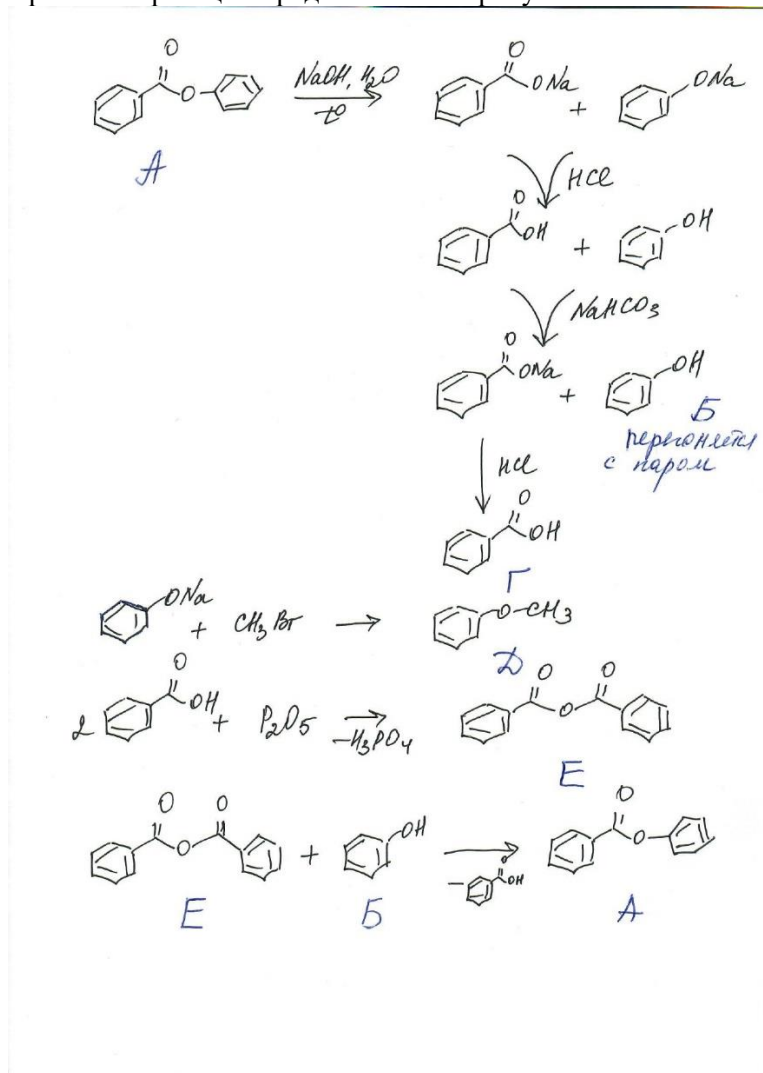 O
O NaOH, H2O t° O ONa + ONa
А
HCl
O
OH + OH
NaHCO3
O
ONa + OH
Б
перегоняется
с паром
HCl
O
OH
Г
ONa + CH3Br → O-CH3
Д
O O O
2 OH + P2O5 -H3PO4 O
Е
O O O
O + OH O
- O OH
Е Б А